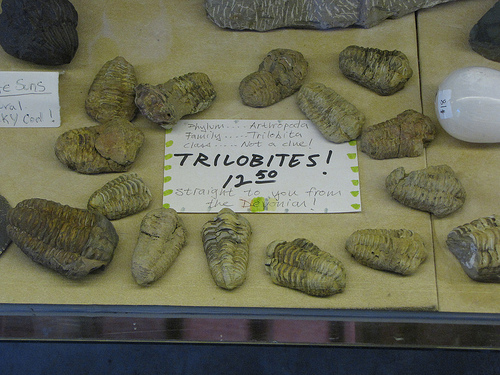 e Suns
ural
ky Cool!
Phylum.... Arthropoda
Family.... Trilobita
Class..... Not a clue!
TRILOBITES!
12.50
Straight to you from
the Devonian!
$14